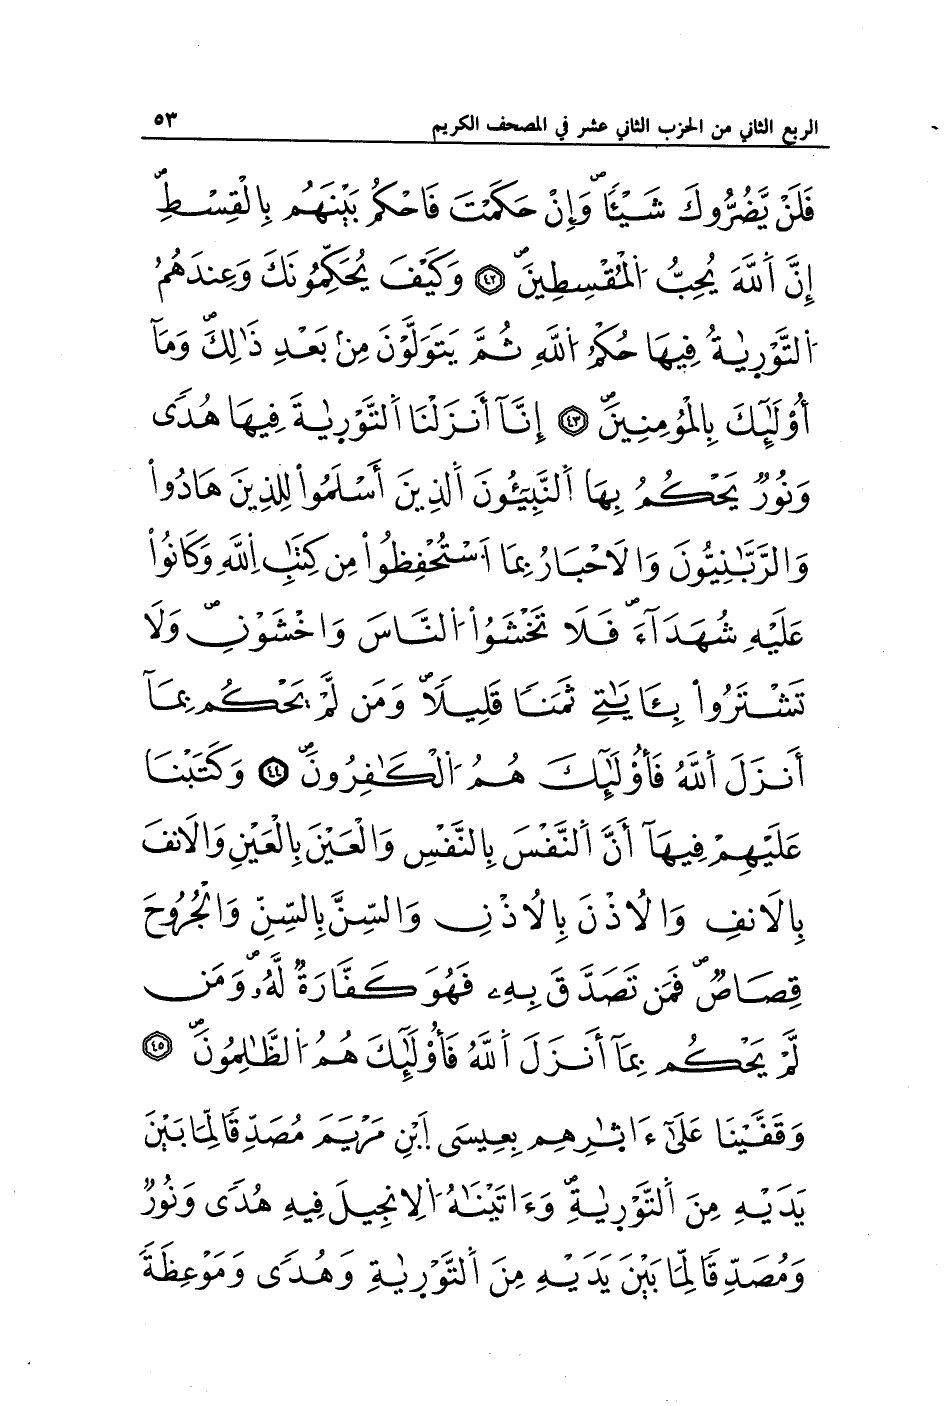 الربع الثاني من الحزب الثاني عشر في المصحف الكريم ٥٣
فَلَنْ يَّضُرُّوكَ شَيْـٔاٗۖ وَإِنْ حَكَمْتَ فَاحْكُم بَيْنَهُم بِالْقِسْطِۖ
إِنَّ اَ۬للَّهَ يُحِبُّ اُ۬لْمُقْسِطِينَۖ ٤٢ وَكَيْفَ يُحَكِّمُونَكَ وَعِندَهُمُ
اُ۬لتَّوْر۪يٰةُ فِيهَا حُكْمُ اُ۬للَّهِ ثُمَّ يَتَوَلَّوْنَ مِنۢ بَعْدِ ذَٰلِكَۖ وَمَآ
أُوْلَٰٓئِكَ بِالْمُؤْمِنِينَۖ ٤٣ إِنَّآ أَنزَلْنَا اَ۬لتَّوْر۪يٰةَ فِيهَا هُدىٗ
وَنُورٞ يَحْكُمُ بِهَا اَ۬لنَّبِيـُٔونَ اَ۬لذِينَ أَسْلَمُواْ لِلذِينَ هَادُواْ
وَالرَّبَّٰنِيُّونَ وَالَاحْبَارُ بِمَا اَ۟سْتُحْفِظُواْ مِن كِتَٰبِ اِ۬للَّهِ وَكَانُواْ
عَلَيْهِ شُهَدَآءَۖ فَلَا تَخْشَوُاْ اُ۬لنَّاسَ وَاخْشَوْنِۖ وَلَا
تَشْتَرُواْ بِـَٔايَٰتِے ثَمَناٗ قَلِيلاٗۖ وَمَن لَّمْ يَحْكُم بِمَآ
أَنزَلَ اَ۬للَّهُ فَأُوْلَٰٓئِكَ هُمُ اُ۬لْكَٰفِرُونَۖ ٤٤ وَكَتَبْنَا
عَلَيْهِمْ فِيهَآ أَنَّ اَ۬لنَّفْسَ بِالنَّفْسِ وَالْعَيْنَ بِالْعَيْنِ وَالَانفَ
بِالَانفِ وَالُاذْنَ بِالُاذْنِ وَالسِّنَّ بِالسِّنِّ وَالْجُرُوحَ
قِصَاصٞۖ فَمَن تَصَدَّقَ بِهِۦ فَهُوَ كَفَّارَةٞ لَّهُۥۖ وَمَن
لَّمْ يَحْكُم بِمَآ أَنزَلَ اَ۬للَّهُ فَأُوْلَٰٓئِكَ هُمُ اُ۬لظَّٰلِمُونَۖ ٤٥
وَقَفَّيْنَا عَلَىٰٓ ءَاثٰ۪رِهِم بِعِيسَى اَ۪بْنِ مَرْيَمَ مُصَدِّقاٗ لِّمَا بَيْنَ
يَدَيْهِ مِنَ اَ۬لتَّوْر۪يٰةِۖ وَءَاتَيْنَٰهُ اُ۬لِانجِيلَ فِيهِ هُدىٗ وَنُورٞ
وَمُصَدِّقاٗ لِّمَا بَيْنَ يَدَيْهِ مِنَ اَ۬لتَّوْر۪يٰةِ وَهُدىٗ وَمَوْعِظَةٗ